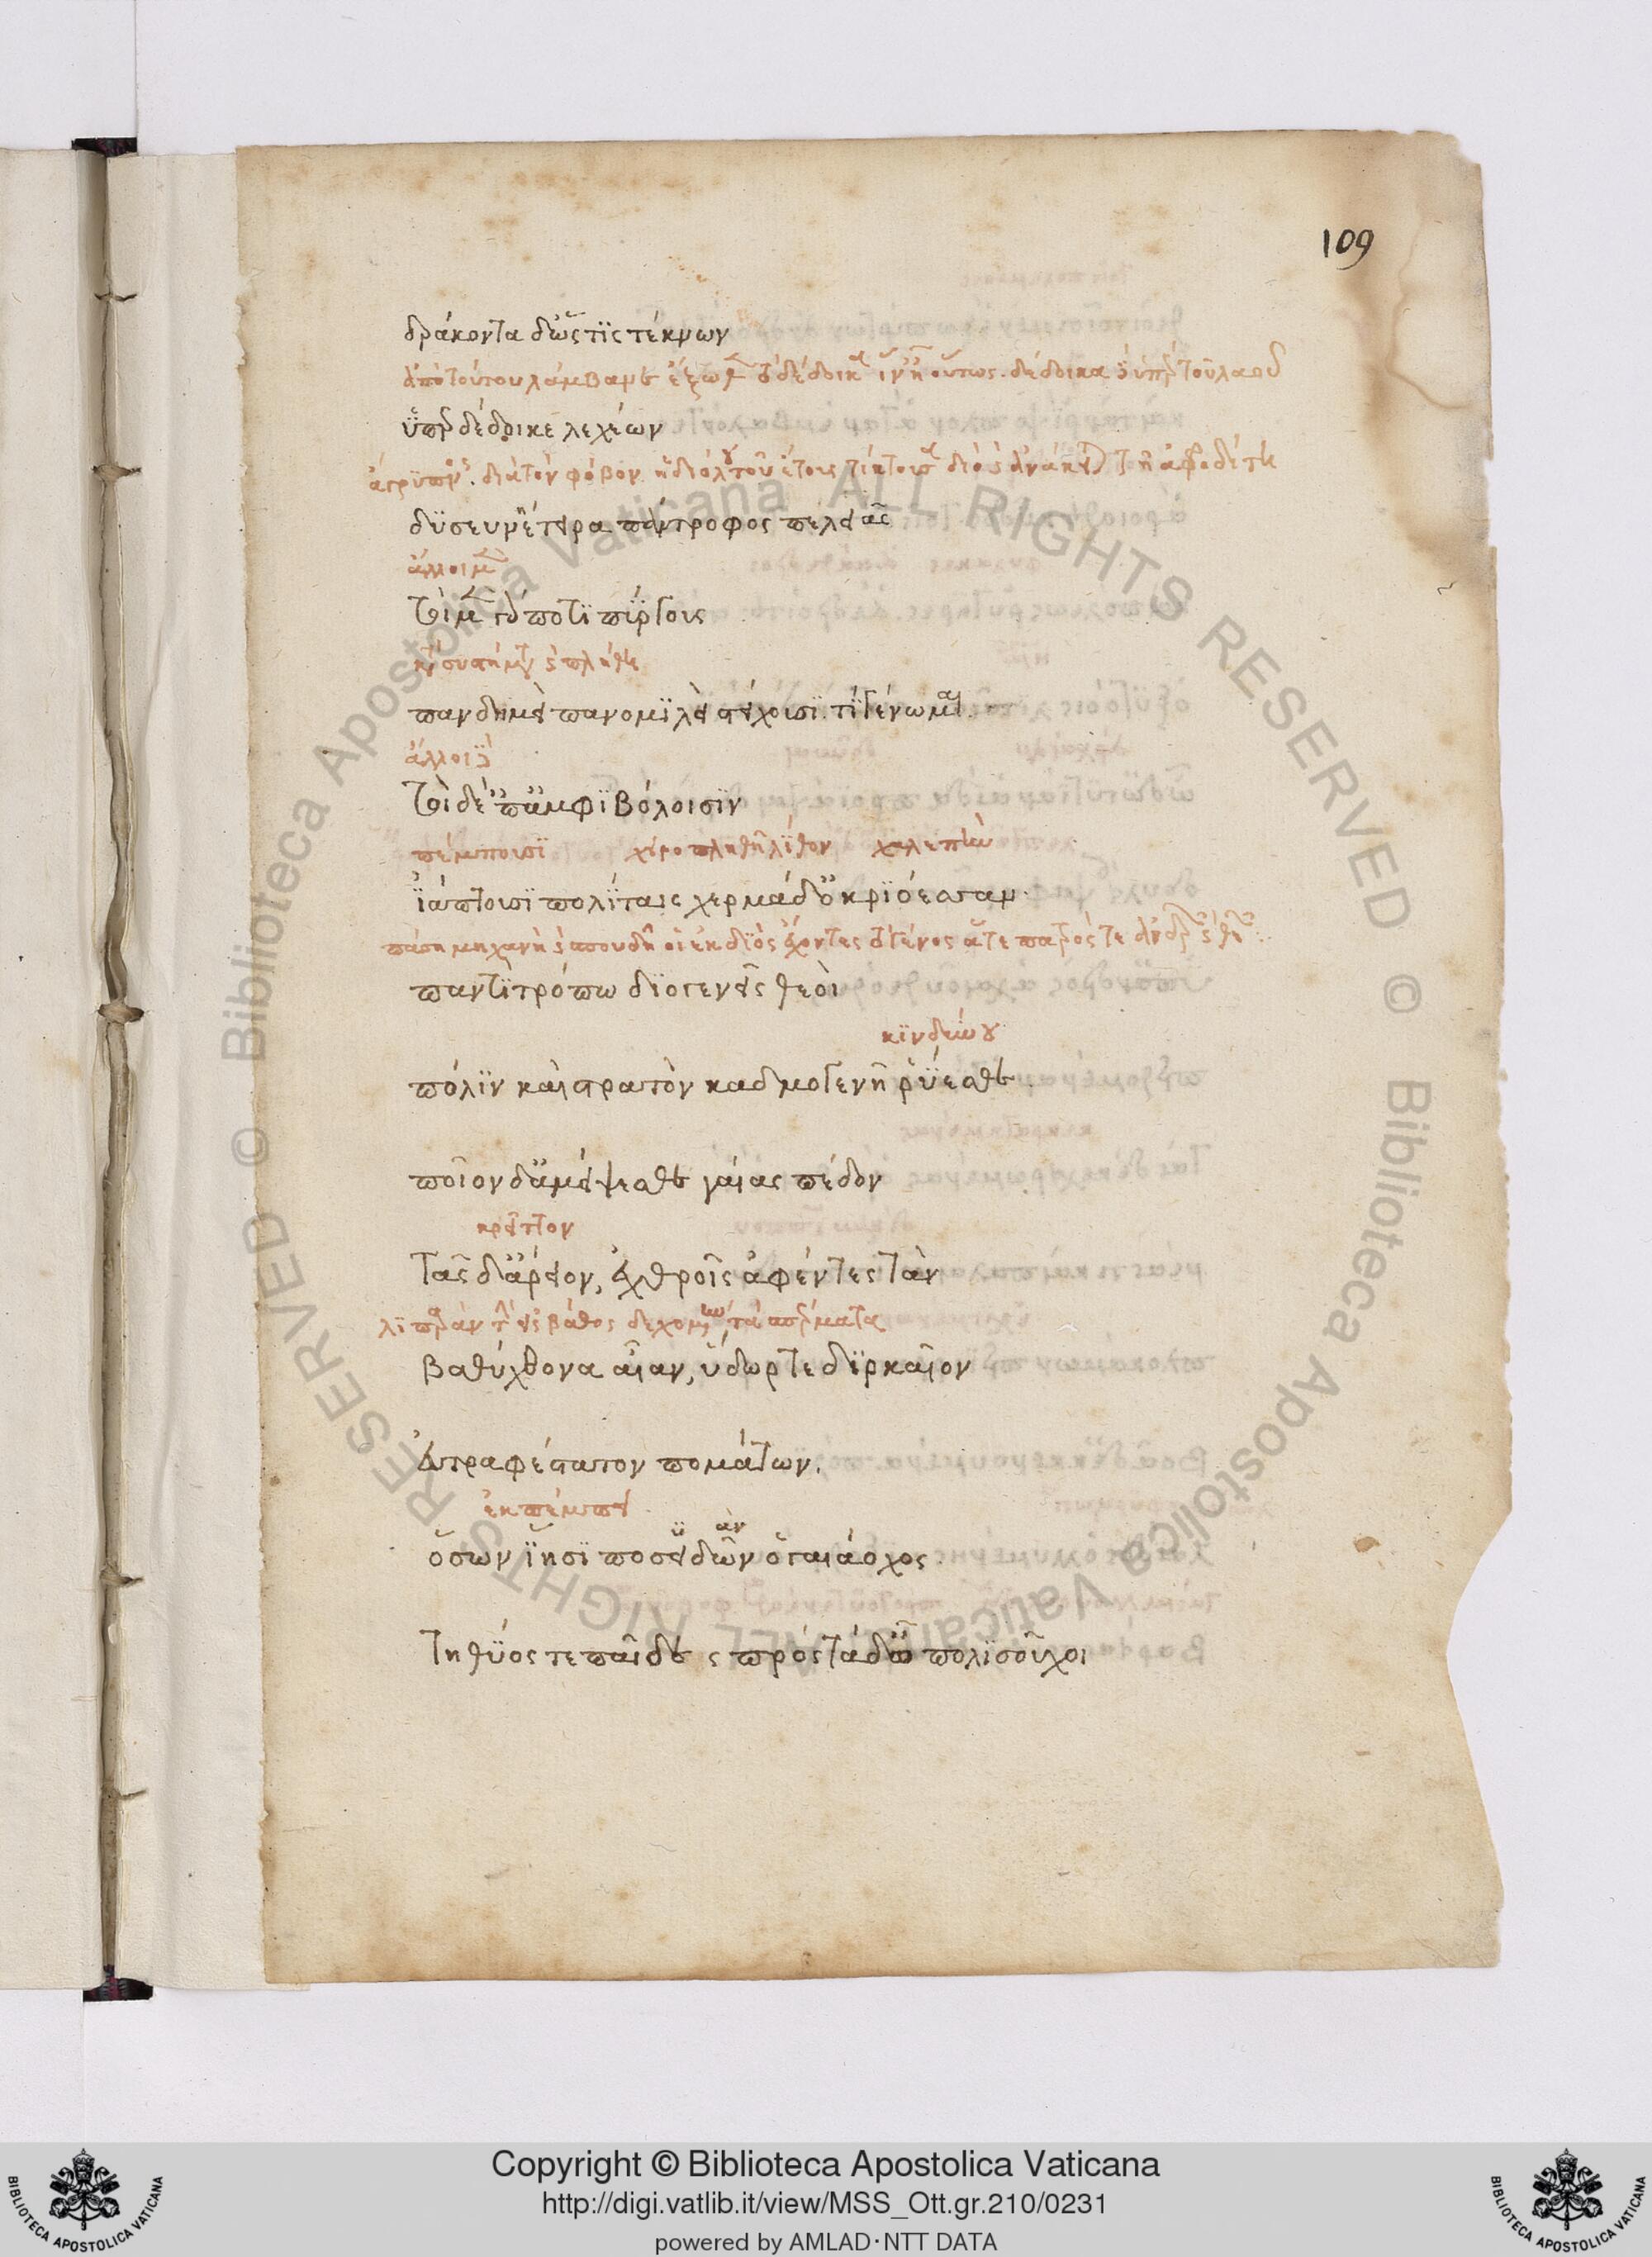 109
δράκοντα δ' ὥς τις τέκνων
ἀπὸ τούτου λάμβανε ἔξωθεν τὸ δέδοικε ἵν' ᾖ οὕτως. δέδοικα ὑπὲρ τοῦ λαοῦ
ὑπερδέδοικε λεχέων
διὰ τὸν φόβον
δυσευνήτειρα πάντροφος πελειάς
ἄλλοι μὲν
τοὶ μὲν γὰρ ποτὶ πύργους
πανδημεὶ πανομιλεὶ στείχουσι. τί γένωμαι
ἄλλοι
τοὶ δ' ἐπ' ἀμφιβόλοισιν
πέμπουσι χειροπληθῆ λίθον χαλεπὴν
ἰάπτουσι πολίταις χερμάδ' ὀκριόεσσαν
πάσῃ μηχανῇ σπουδῇ οἱ ἐκ διὸς ἔχοντες τὸ γένος ἅτε πατρός τε ἀνδρῶν θεῶν
παντὶ τρόπῳ διογενεῖς θεοὶ
κινδύνου
πόλιν καὶ στρατὸν καδμογενῆ ῥύεσθε
ποῖον δ' ἀμείψεσθε γαίας πέδον
κρεῖττον
τᾶς δ' ἄρειον, ἐχθροῖς ἀφέντες τὰν
λιπαρὰν τὴν εἰς βάθος δεχομένην τὰ σπέρματα
βαθύχθον' αἶαν, ὕδωρ τε διρκαῖον
εὐτραφέστατον πομάτων.
ἐκπέμπει
ὅσων ἵησι ποσειδῶν ὁ γαιάοχος
τηθύος τε παῖδες πρὸς τάδ' ὦ πολισσοῦχοι
Copyright © Biblioteca Apostolica Vaticana
http://digi.vatlib.it/view/MSS_Ott.gr.210/0231
powered by AMLAD·NTT DATA
BIBLIOTECA APOSTOLICA VATICANA
BIBLIOTECA APOSTOLICA VATICANA
© Biblioteca Apostolica Vaticana ALL RIGHTS RESERVED
© Biblioteca Apostolica Vaticana ALL RIGHTS RESERVED